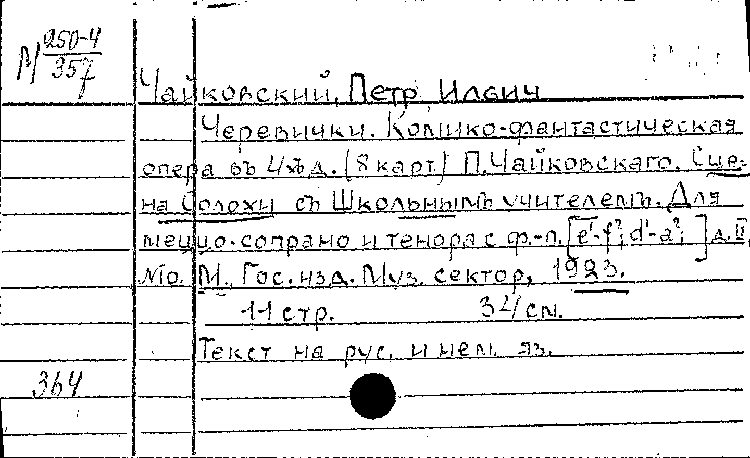 М 250-4
357
Чайковский, Петр Ильич
Черевички. Комико-фантастическая
опера въ 4хъ д. (8 карт) П. Чайковскаго. Сце-
на Солохи съ Школьнымъ учителемъ. Для
меццо-сопрано и тенора с ф.-п. [e¹-f²; d¹-a²; ] д. II,
№10. М., Гос. изд. Муз. сектор, 1923.
11 стр. 34 см.
Текст на рус. и нем. яз.
364